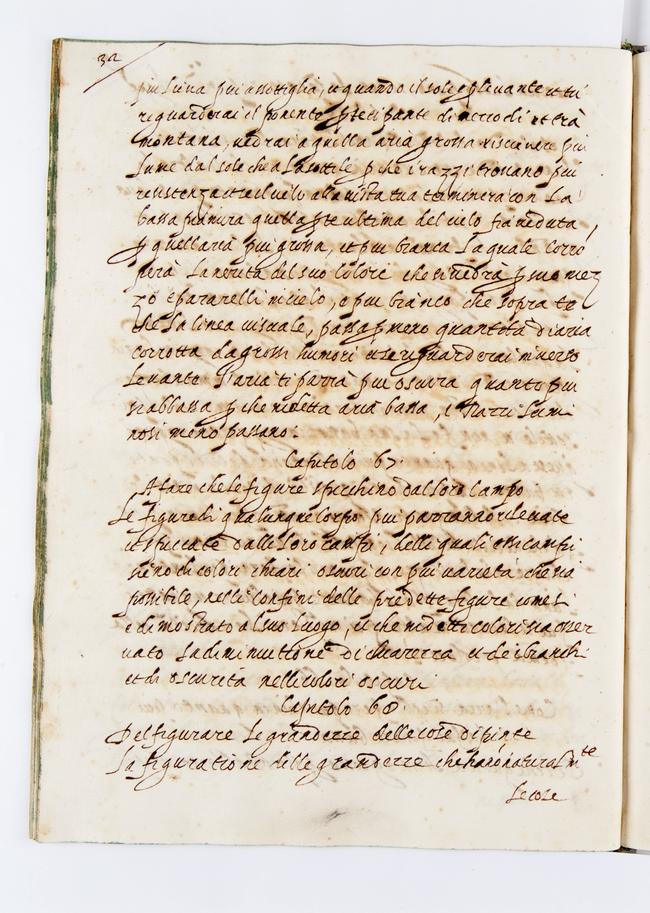 32
piu lieva piu assottiglia, et quando il sole e p levante et tu
riguarderai il ponente pticipante di mezzo di et tra
montana, vedrai a quella aria grossa riscievere piu
lume dal sole che a la sottile p che i razzi trovano piu
resistenza et se il cielo alla vista tua terminera con la
bassa pianura quella pte ultima del cielo fia veduta
p quell aria piu grossa, et piu bianca la quale corro
pera la verita del suo colore che si vedra p suo mez
zo e pararelli in cielo, e piu bianco che sopra te
che la linea visuale, passa p meno quantita di aria
corrotta da grossi humori et se riguarderai in verso
levante l'aria ti parra piu oscura quanto piu
s'abbassa p che in detta aria bassa, i razzi lumi
nosi meno passano.
Capitolo 67.
A fare che le figure spicchino dal loro campo
Le figure di qualunque corpo piu parranno rilevate
et spiccate dalle loro campi, delli quali essi campi
sieno di colori chiari o scuri con piu varieta che sia
possibile, nelli confini delle predette figure come si
e dimostrato al suo luogo, et che ne detti colori sia osser
vato la diminuttione di chiarezza ne de i bianchi
et di oscurita nelli colori oscuri
Capitolo 68
Del figurare le grandezze delle cose dipinte
La figuratione delle grandezze che hano naturalmte
le cose